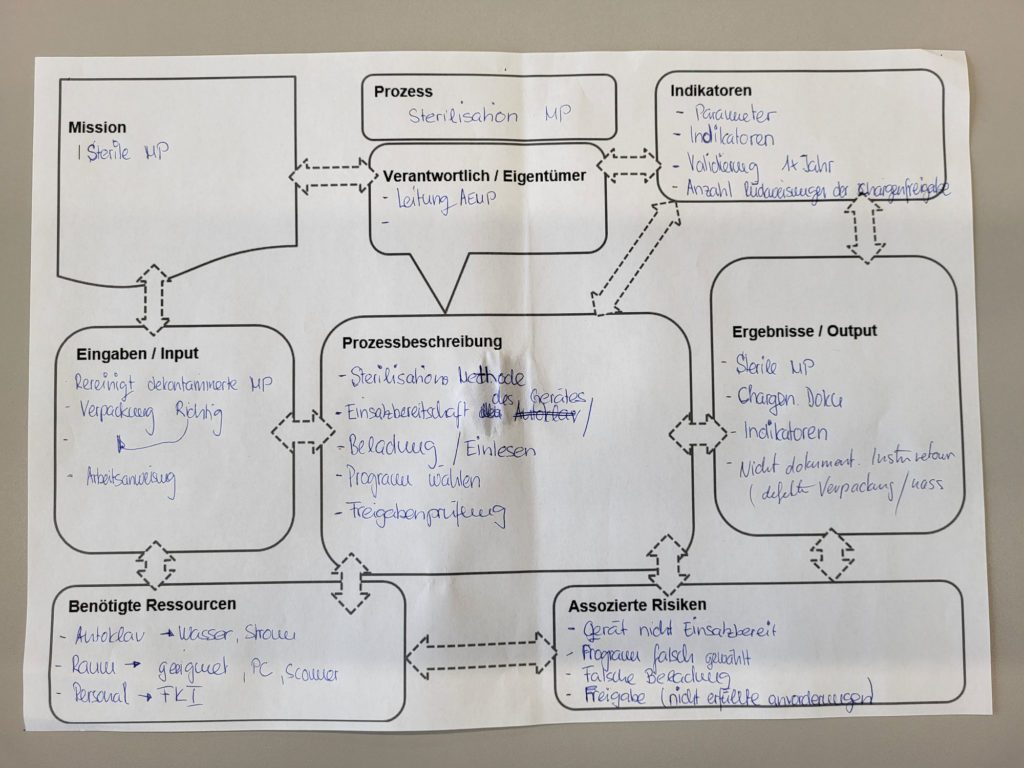 Prozess
Sterilisation MP
Mission
1 Sterile MP
Verantwortlich / Eigentümer
- Leitung AEMP
-
Indikatoren
- Parameter
- Indikatoren
- Validierung 1x Jahr
- Anzahl der Chargenfreigabe
Eingaben / Input
dekontaminierte MP
- Verpackung Richtig
-
- Arbeitsanweisung
Prozessbeschreibung
- Sterilisations Methode
des Gerätes
- Einsatzbereitschaft Autoklav /
- Beladung / Einlesen
- Program wählen
- Freigabenprüfung
Ergebnisse / Output
- Sterile MP
- Chargen Doku
- Indikatoren
- Nicht dokument. Instr. retour
( defekte Verpackung / nass
Benötigte Ressourcen
- Autoklav → Wasser, Strom
- Raum → geeignet, PC, Scanner
- Personal → FKI
Assozierte Risiken
- Gerät nicht Einsatzbereit
- Program falsch gewählt
- Falsche Beladung
- Freigabe (nicht erfüllte anvorderungen)